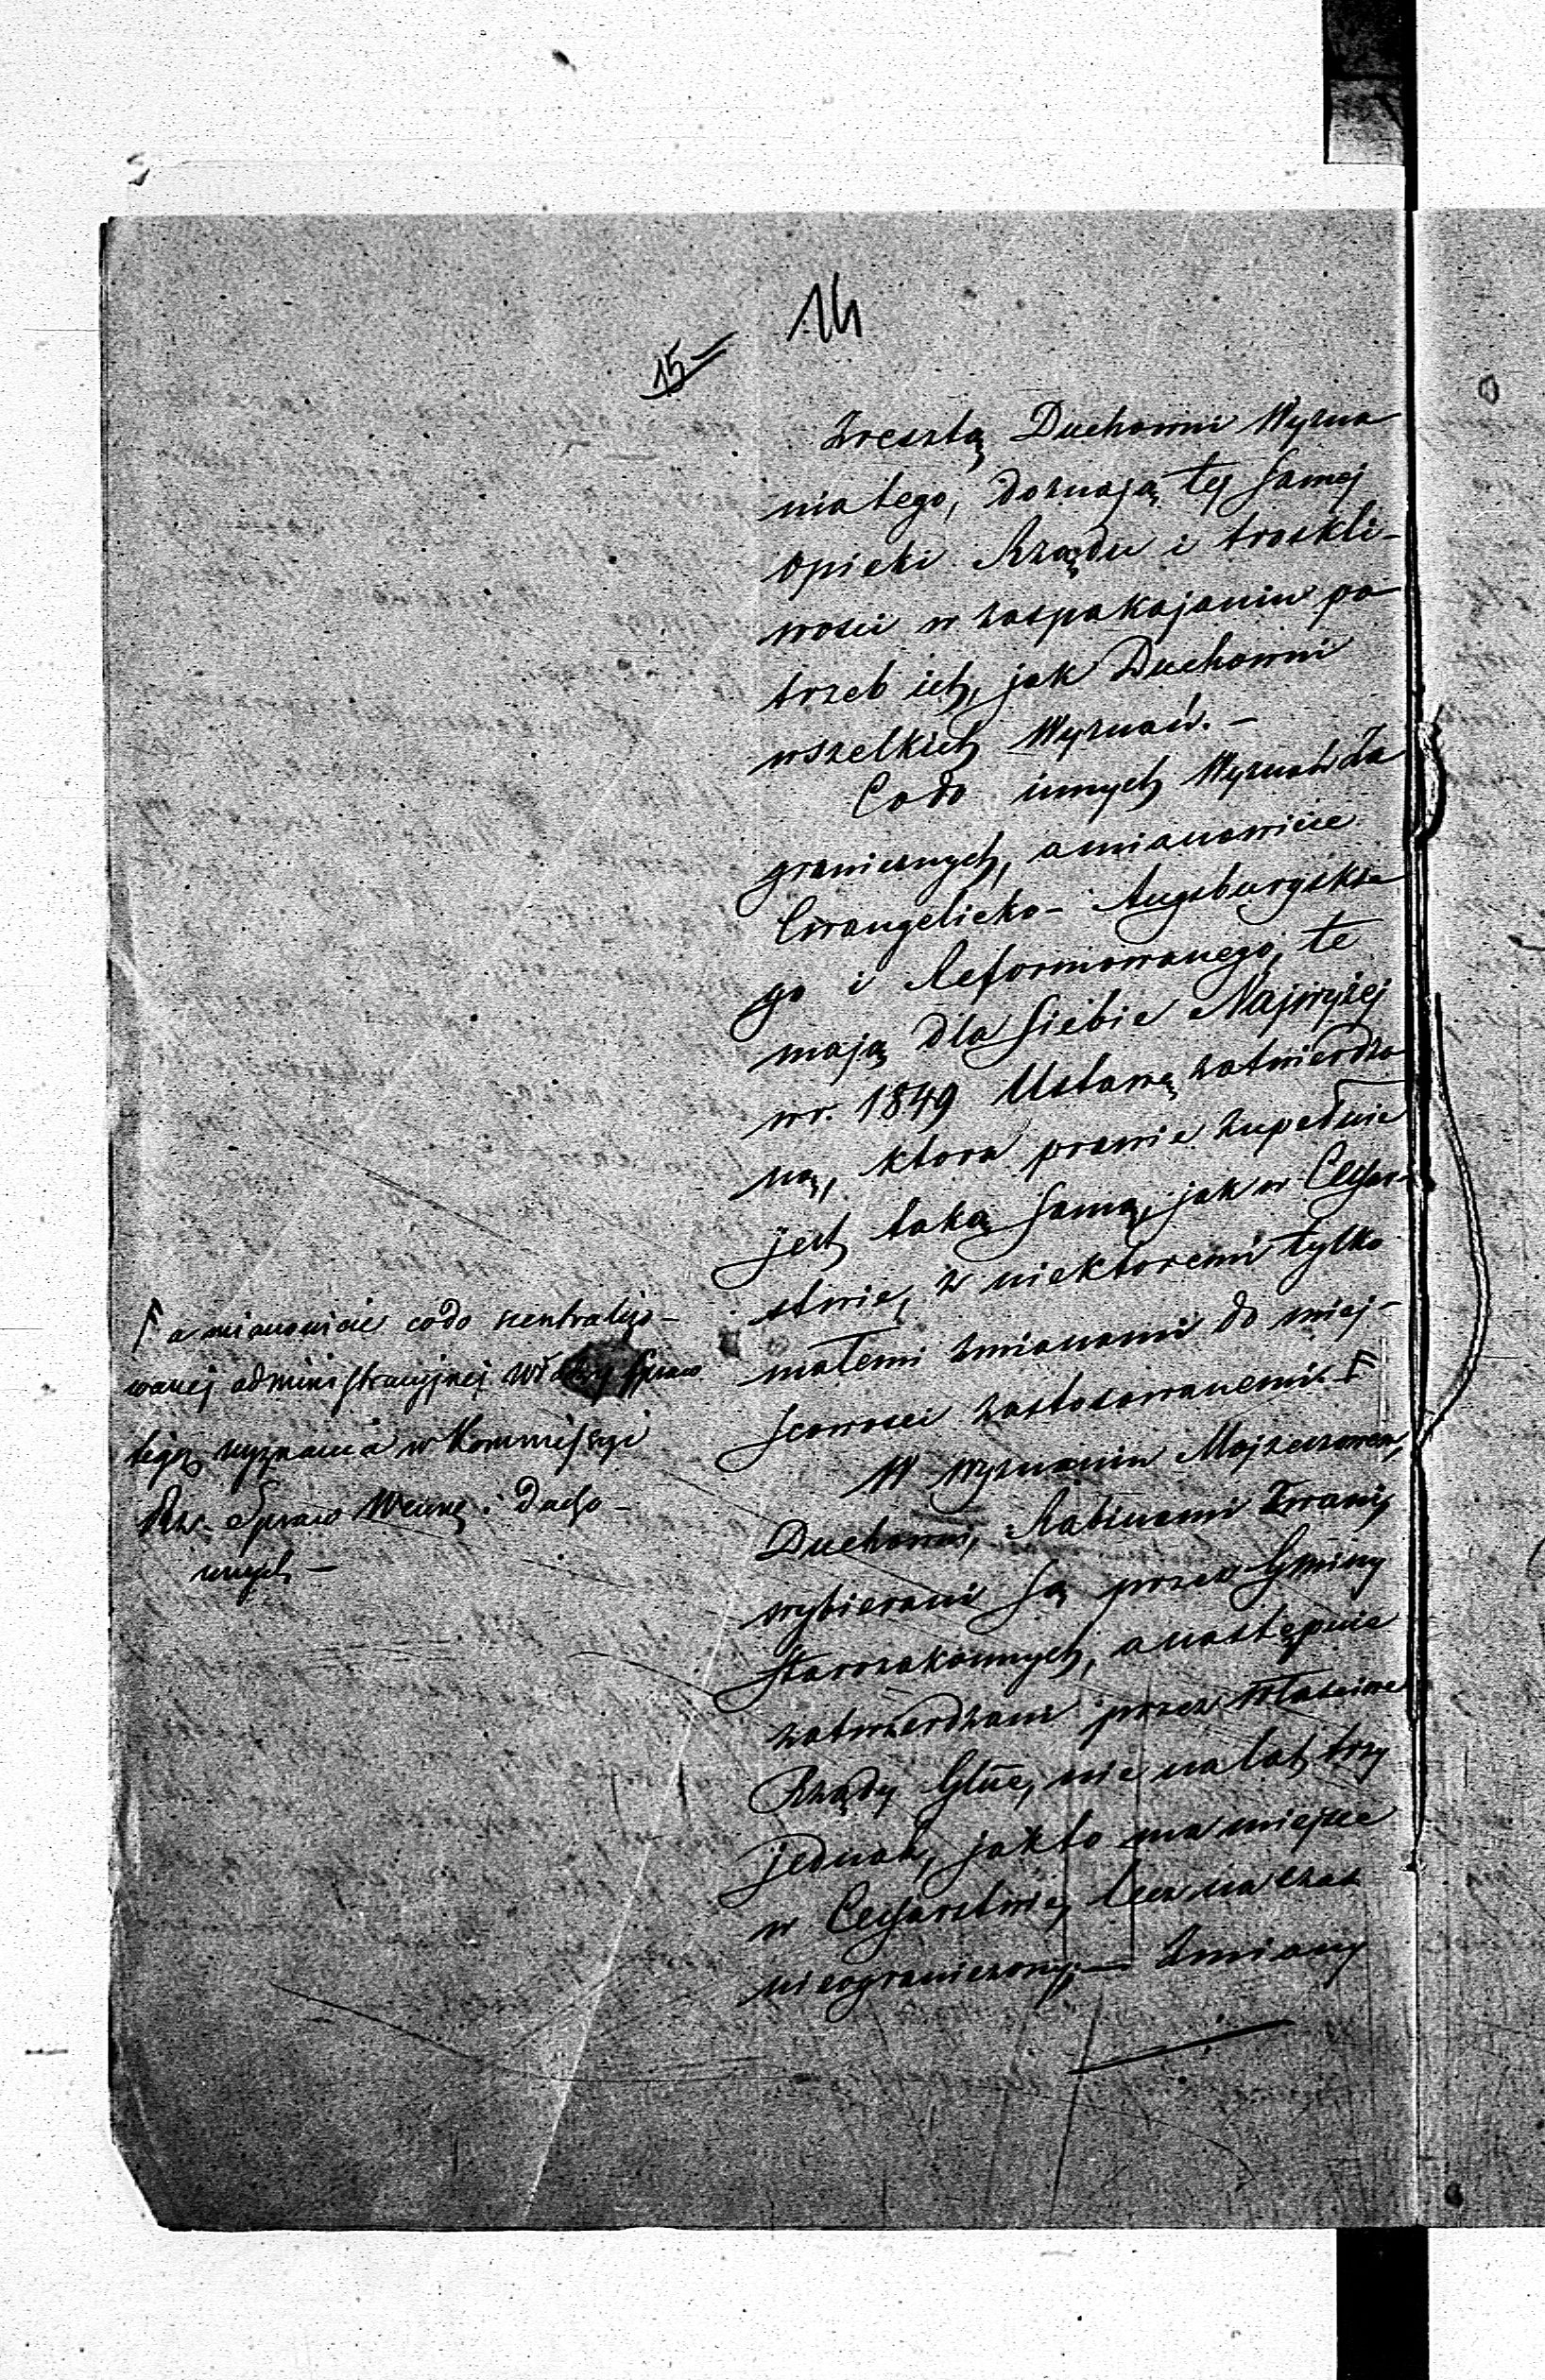 14
15
Zresztą Duchowni Wyzna
nia tego, doznają tej samej
Opieki Rządu i troskli-
wości w zaspakajaniu po
trzeb ich, jak Duchowni
wszelkich Wyznań. –
Co do innych Wyznań Za
granicznych, a mianowicie
Ewangelicko-Augsburgskie
go i Reformowanego, te
mają dla siebie Najwyżej
w r. 1849 Ustawę zatwierdzo
ną, która prawie zupełnie
jest taką samą, jak w Cesar-
stwie, z niektóremi tylko
małemi zmianami do miej-
scowości zastosowanemi. F
W wyznaniu Mojżeszowem,
Duchowni, Rabinami Zwani,
wybierani są przez Gminy
Starozakonnych, a następnie
zatwierdzani przez właściwe
Rządy Głne, nie na lat trzy
jednak, jak to ma miejsce
w Cesarstwie, lecz na czas
nieograniczony; — Zmiany
F a mianowicie co do scentralizo-
wanej administracyjnej władzy Spraw
tegoż wyznania w Kommissyi
Rz. Spraw Wewnę. i Ducho-
wnych –